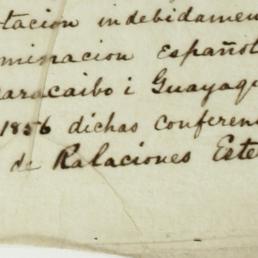 tacion indebidamen
minacion Española
aracaibo i Guayaqu
1856 dichas conferen
de Ralaciones Este